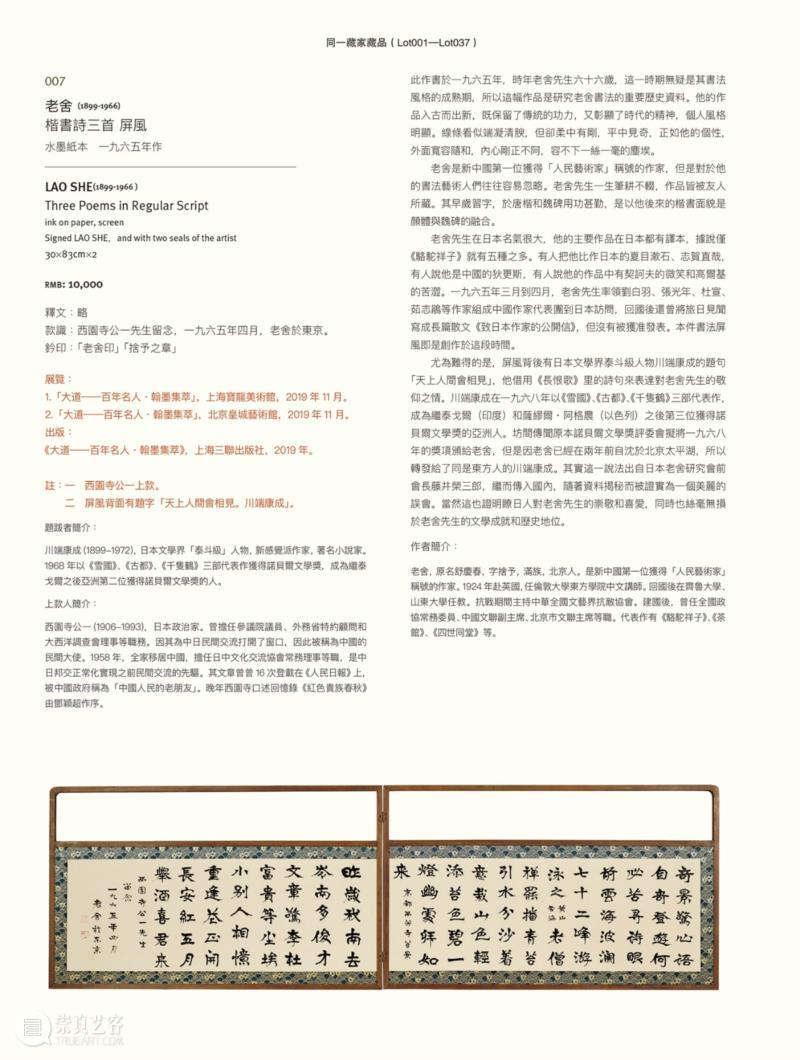 同一藏家藏品（Lot001—Lot037）
007
老舍 (1899-1966)
楷書詩三首 屏風
水墨紙本　一九六五年作
LAO SHE(1899-1966)
Three Poems in Regular Script
ink on paper, screen
Signed LAO SHE，and with two seals of the artist
30×83cm×2
RMB: 10,000
釋文：略
款識：西園寺公一先生留念，一九六五年四月，老舍於東京。
鈐印：「老舍印」「捨予之章」
展覽：
1.「大道——百年名人·翰墨集萃」，上海寶龍美術館，2019 年 11 月。
2.「大道——百年名人·翰墨集萃」，北京皇城藝術館，2019 年 11 月。
出版：
《大道——百年名人·翰墨集萃》，上海三聯出版社，2019 年。
註：一　西園寺公一上款。
二　屏風背面有題字「天上人間會相見。川端康成」。
題跋者簡介：
川端康成 (1899–1972)，日本文學界「泰斗級」人物，新感覺派作家，著名小說家。
1968 年以《雪國》、《古都》、《千隻鶴》三部代表作獲得諾貝爾文學獎，成為繼泰
戈爾之後亞洲第二位獲得諾貝爾文學獎的人。
上款人簡介：
西園寺公一 (1906–1993)，日本政治家。曾擔任參議院議員、外務省特約顧問和
大西洋調查會理事等職務。因其為中日民間交流打開了窗口，因此被稱為中國的
民間大使。1958 年，全家移居中國，擔任日中文化交流協會常務理事等職，是中
日邦交正常化實現之前民間交流的先驅。其文章曾曾 16 次登載在《人民日報》上，
被中國政府稱為「中國人民的老朋友」。晚年西園寺口述回憶錄《紅色貴族春秋》
由鄧穎超作序。
此作書於一九六五年，時年老舍先生六十六歲，這一時期無疑是其書法
風格的成熟期，所以這幅作品是研究老舍書法的重要歷史資料。他的作
品入古而出新，既保留了傳統的功力，又彰顯了時代的精神，個人風格
明顯。線條看似端凝清腴，但卻柔中有剛，平中見奇，正如他的個性，
外面寬容隨和，內心剛正不阿，容不下一絲一毫的塵埃。
老舍是新中國第一位獲得「人民藝術家」稱號的作家，但是對於他
的書法藝術人們往往容易忽略。老舍先生一生筆耕不輟，作品皆被友人
所藏。其早歲習字，於唐楷和魏碑用功甚勤，是以他後來的楷書面貌是
顏體與魏碑的融合。
老舍先生在日本名氣很大，他的主要作品在日本都有譯本，據說僅
《駱駝祥子》就有五種之多。有人把他比作日本的夏目漱石、志賀直哉，
有人說他是中國的狄更斯，有人說他的作品中有契訶夫的微笑和高爾基
的苦澀。一九六五年三月到四月，老舍先生率領劉白羽、張光年、杜宣、
茹志鵑等作家組成中國作家代表團到日本訪問，回國後還曾將旅日見聞
寫成長篇散文《致日本作家的公開信》，但沒有被獲准發表。本件書法屏
風即是創作於這段時間。
尤為難得的是，屏風背後有日本文學界泰斗級人物川端康成的題句
「天上人間會相見」，他借用《長恨歌》里的詩句來表達對老舍先生的敬
仰之情。川端康成在一九六八年以《雪國》、《古都》、《千隻鶴》三部代表作，
成為繼泰戈爾（印度）和薩繆爾·阿格農（以色列）之後第三位獲得諾
貝爾文學獎的亞洲人。坊間傳聞原本諾貝爾文學獎評委會擬將一九六八
年的獎項頒給老舍，但是因老舍已經在兩年前自沈於北京太平湖，所以
轉發給了同是東方人的川端康成。其實這一說法出自日本老舍研究會前
會長藤井榮三郎，繼而傳入國內，隨著資料揭秘而被證實為一個美麗的
誤會。當然這也證明瞭日人對老舍先生的崇敬和喜愛，同時也絲毫無損
於老舍先生的文學成就和歷史地位。
作者簡介：
老舍，原名舒慶春，字捨予，滿族，北京人。是新中國第一位獲得「人民藝術家」
稱號的作家。1924 年赴英國，任倫敦大學東方學院中文講師。回國後在齊魯大學、
山東大學任教。抗戰期間主持中華全國文藝界抗敵協會。建國後，曾任全國政
協常務委員、中國文聯副主席、北京市文聯主席等職。代表作有《駱駝祥子》、《茶
館》、《四世同堂》等。
奇景驚心語
自奇登遊何
必苦尋詩眠
倚雲海波瀾
七十二峰游
泳之 黃山
老僧
祥羅掃青苔
引水分沙著
意栽山色輕
添苔色碧一
燈幽處解如
來 京都
昨歲秋南去
岑南多俊才
文章驚李杜
富貴等塵埃
小別人相憶
重逢花正開
長安紅五月
舉酒喜君來
西園寺公一先生
留念
一九六五年四月
老舍於東京
崇真艺客
TRUEART.COM